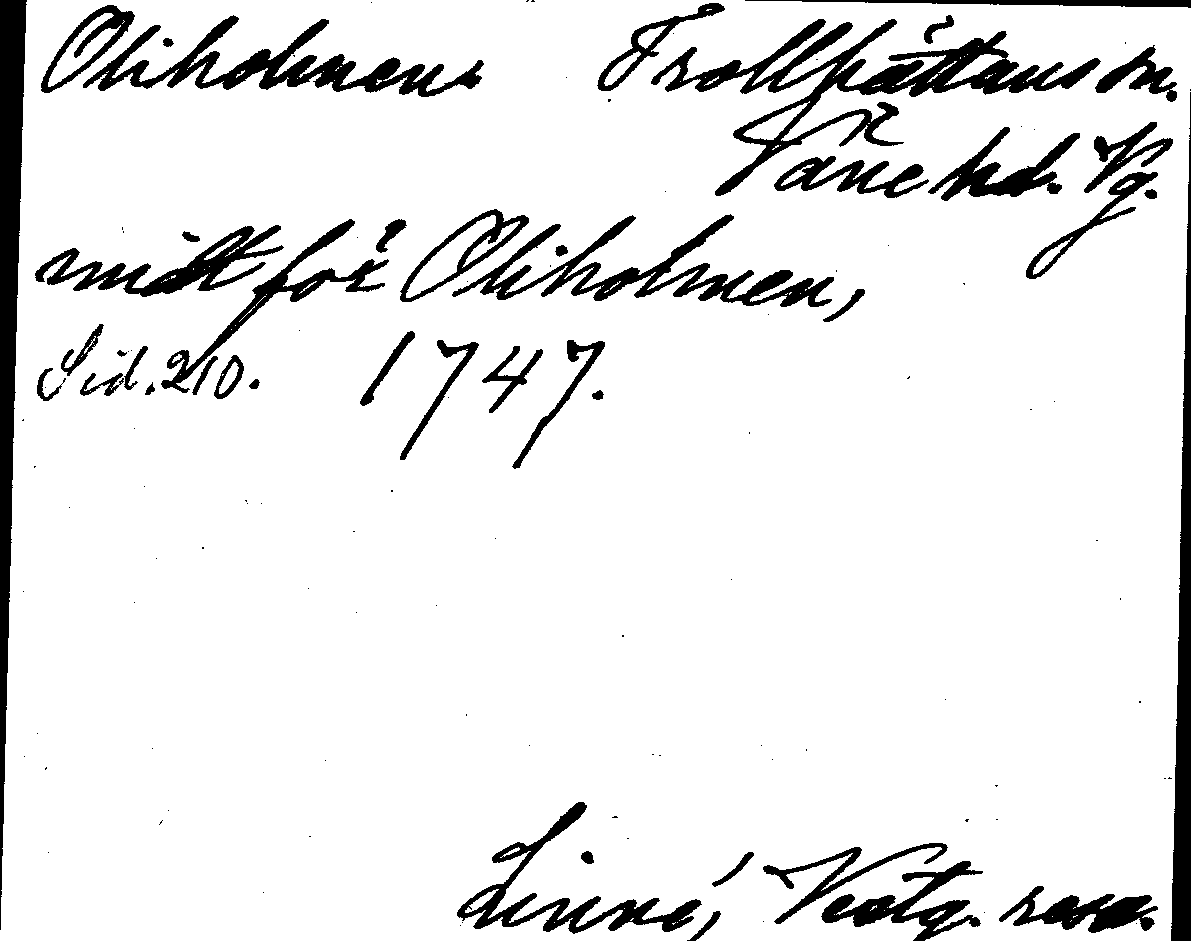 Oliholmen. Trollhättans sn.
Väne hd. Vg.
midt för Oliholmen,
Sid. 210. 1747.
Linné, Vestg. resa.